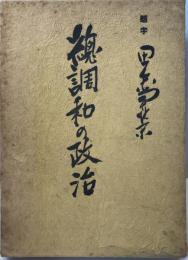 題字
田中角榮
魂調和の政治